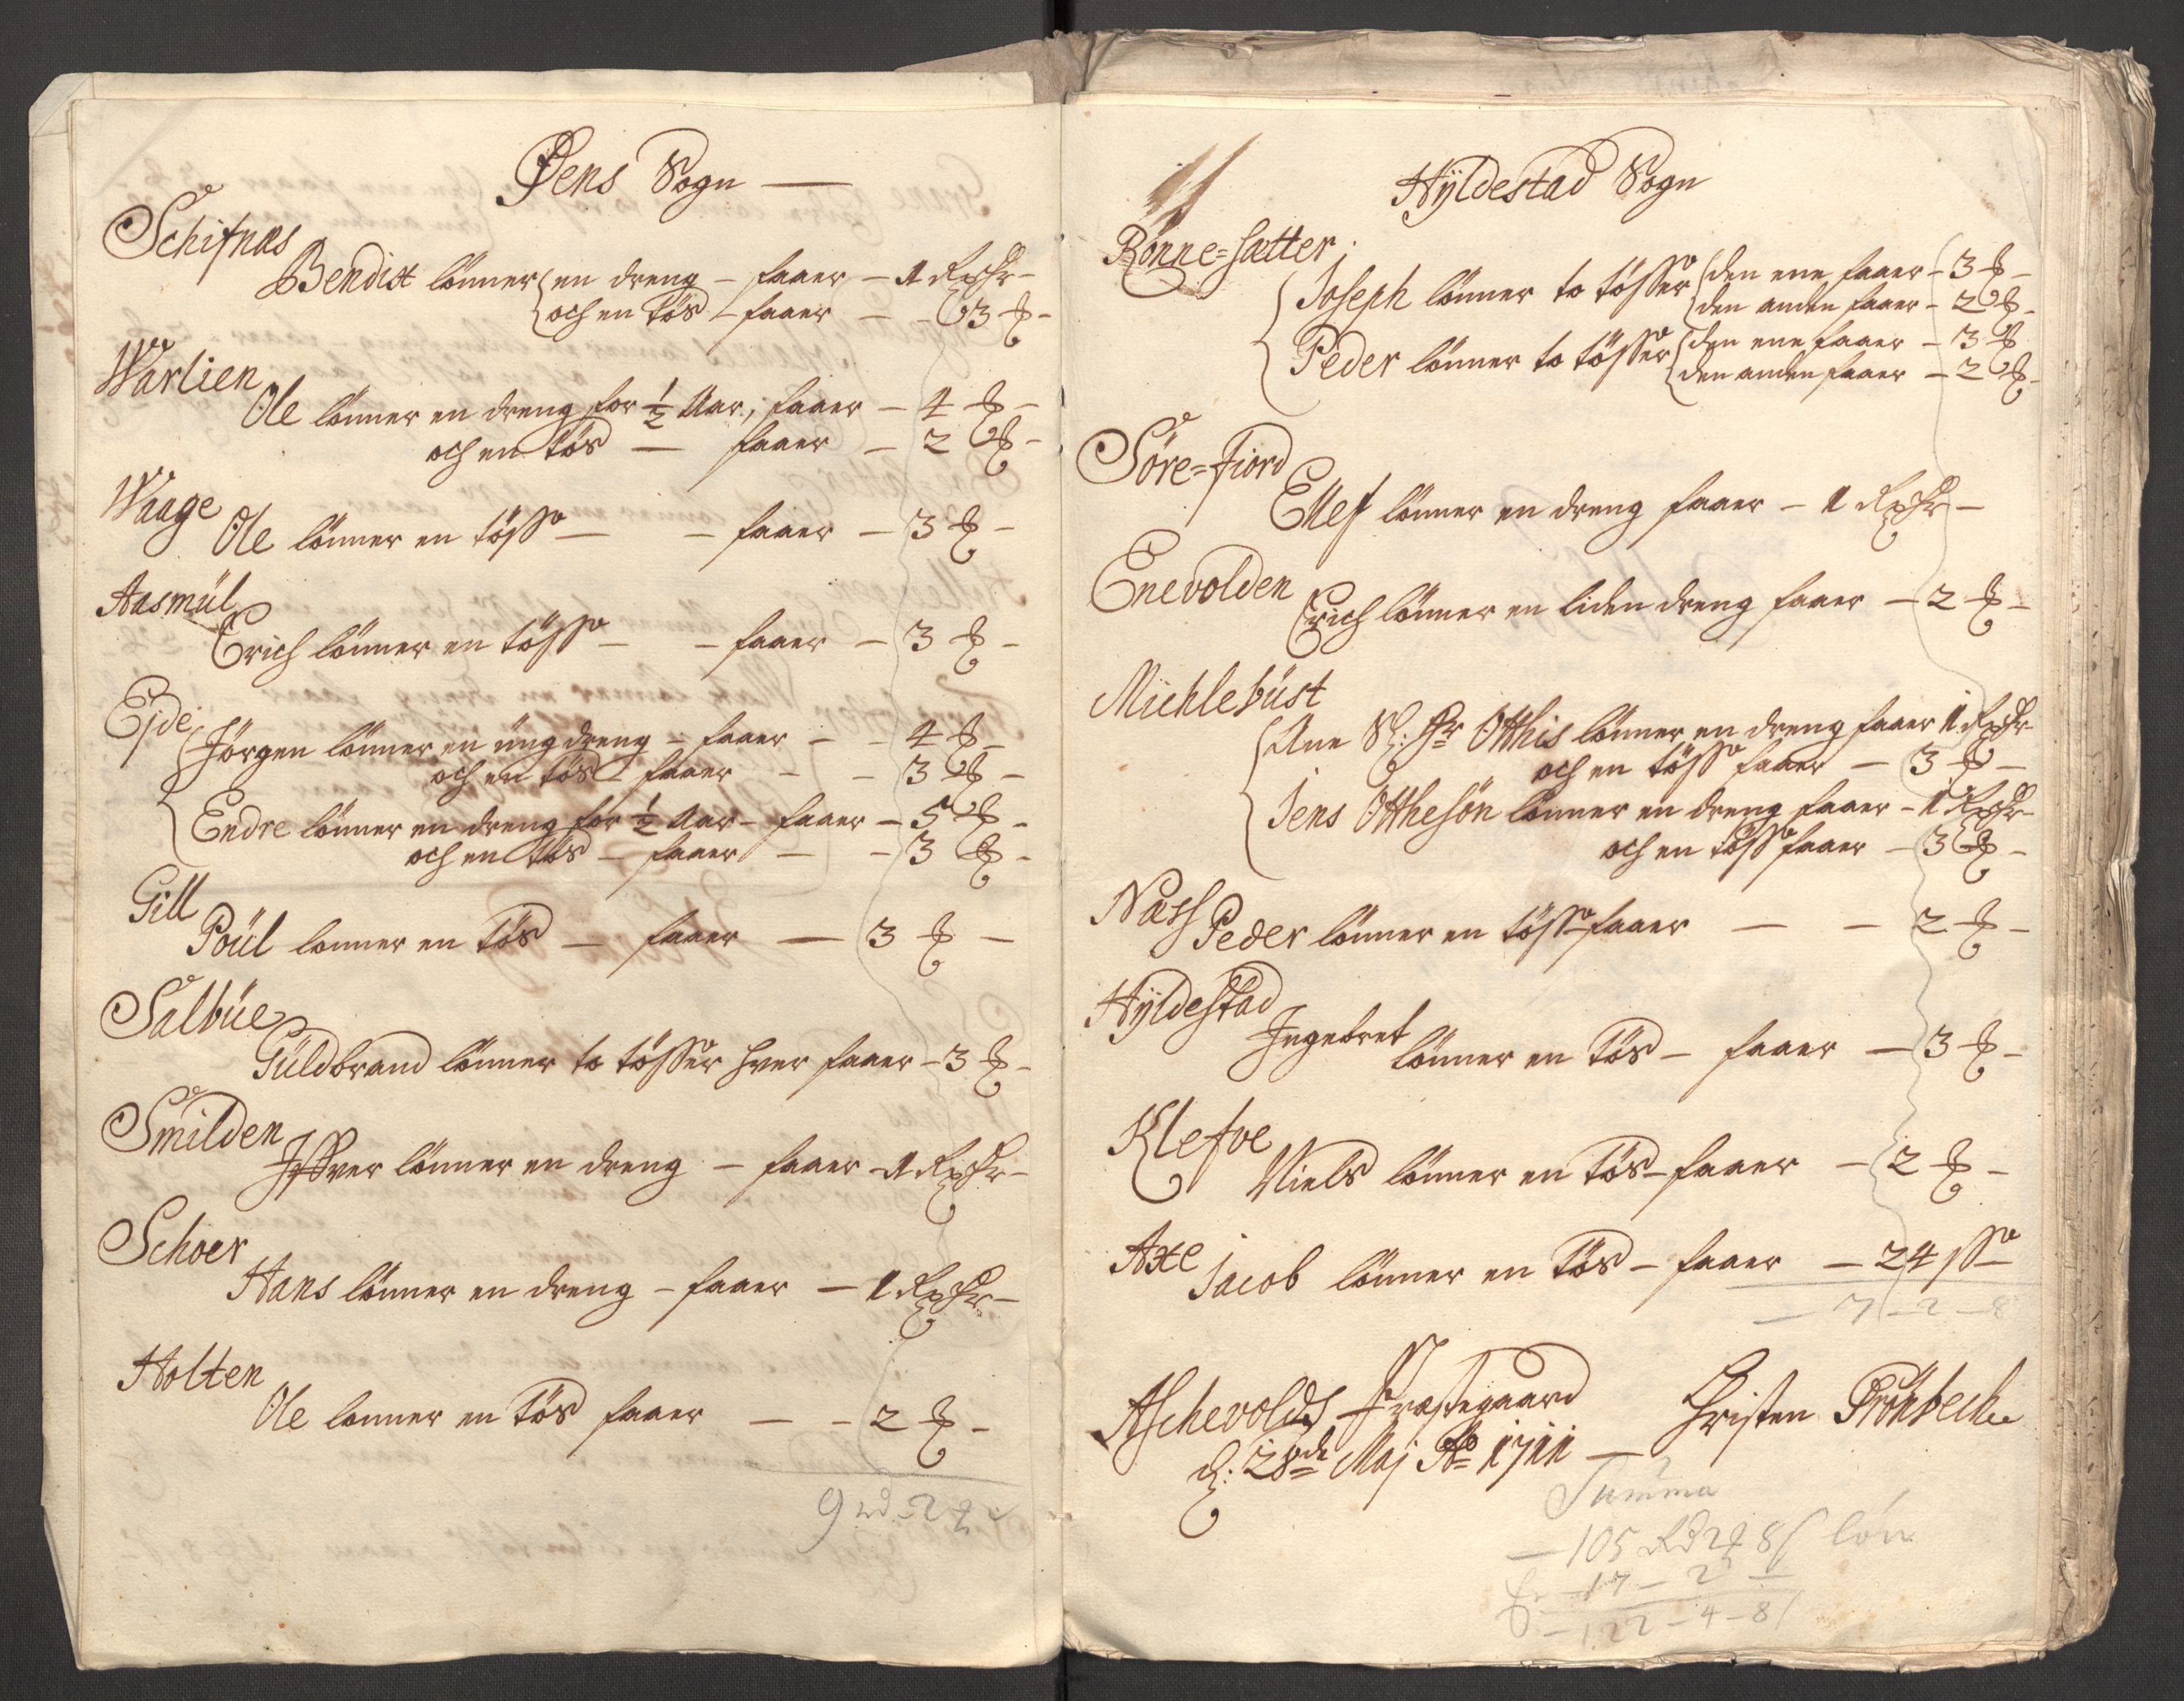 Øens Sogn —
Schifnæs
Bendix lønner en dreng – faaer – 1 Rixdr –
och en tøs – faaer – – 3 ꝑ –
Warlien
Ole lønner en dreng for ½ Aar, faaer – 4 ꝑ –
och en tøs — faaer – 2 ꝑ –
Waage
Ole lønner en tøsse – – faaer – 3 ꝑ –
Aasmül
Erich lønner en tøsse – – faaer – 3 ꝑ –
Ejde
Jørgen lønner en ung dreng – faaer – – 4 ꝑ –
och en tøs – faaer – – 3 ꝑ –
Endre lønner en dreng for ½ Aar – faaer – 5 ꝑ –
och en tøs – faaer – – 3 ꝑ –
Gill
Poül lønner en tøs – faaer — 3 ꝑ –
Salbüe
Güldbrand lønner to tøsser hver faaer – 3 ꝑ –
Smilden
Ifver lønner en dreng – faaer – 1 Rixdr –
Schoer
Hans lønner en dreng – faaer – 1 Rixdr –
Holten
Ole lønner en tøs faaer – – 2 ꝑ –
9 rd 2 ꝑ
Hÿldestad Sogn
Rönne=sætter
Joseph lønner to tøsser den ene faaer – 3 ꝑ –
den anden faaer – 2 ꝑ –
Peder lønner to tøsser den ene faaer – 3 ꝑ
den anden faaer – 2 ꝑ –
Söre=fiord
Ellef lønner en dreng faaer – 1 Rixdr –
Enevolden
Erich lønner en liden dreng faaer – 2 ꝑ –
Michlebüst
Ane Sl: Hr Otthis lønner en dreng faaer 1 Rixdr
och en tøsse faaer – 3 ꝑ –
Jens Otthesön lønner en dreng faaer – 1 Rixdr –
och en tøsse faaer – 3 ꝑ –
Næss
Peder lønner en tøsse faaer — – 2 ꝑ –
Hÿldestad
Ingebret lønner en tøs – faaer – 3 ꝑ –
Klefve
Niels lønner en tøs – faaer – 2 ꝑ –
Axe
Jacob lønner en tøs – faaer – 24 ss –
– 7 – 2 – 8
Aschevolds Præstegaard
d: 28de Maj Ao 1711 —
Christen Frönbech
Summa
– 105 Rd 2 ꝑ 8 s løn
– 17 – 2 –
– 122 – 4 – 8 s